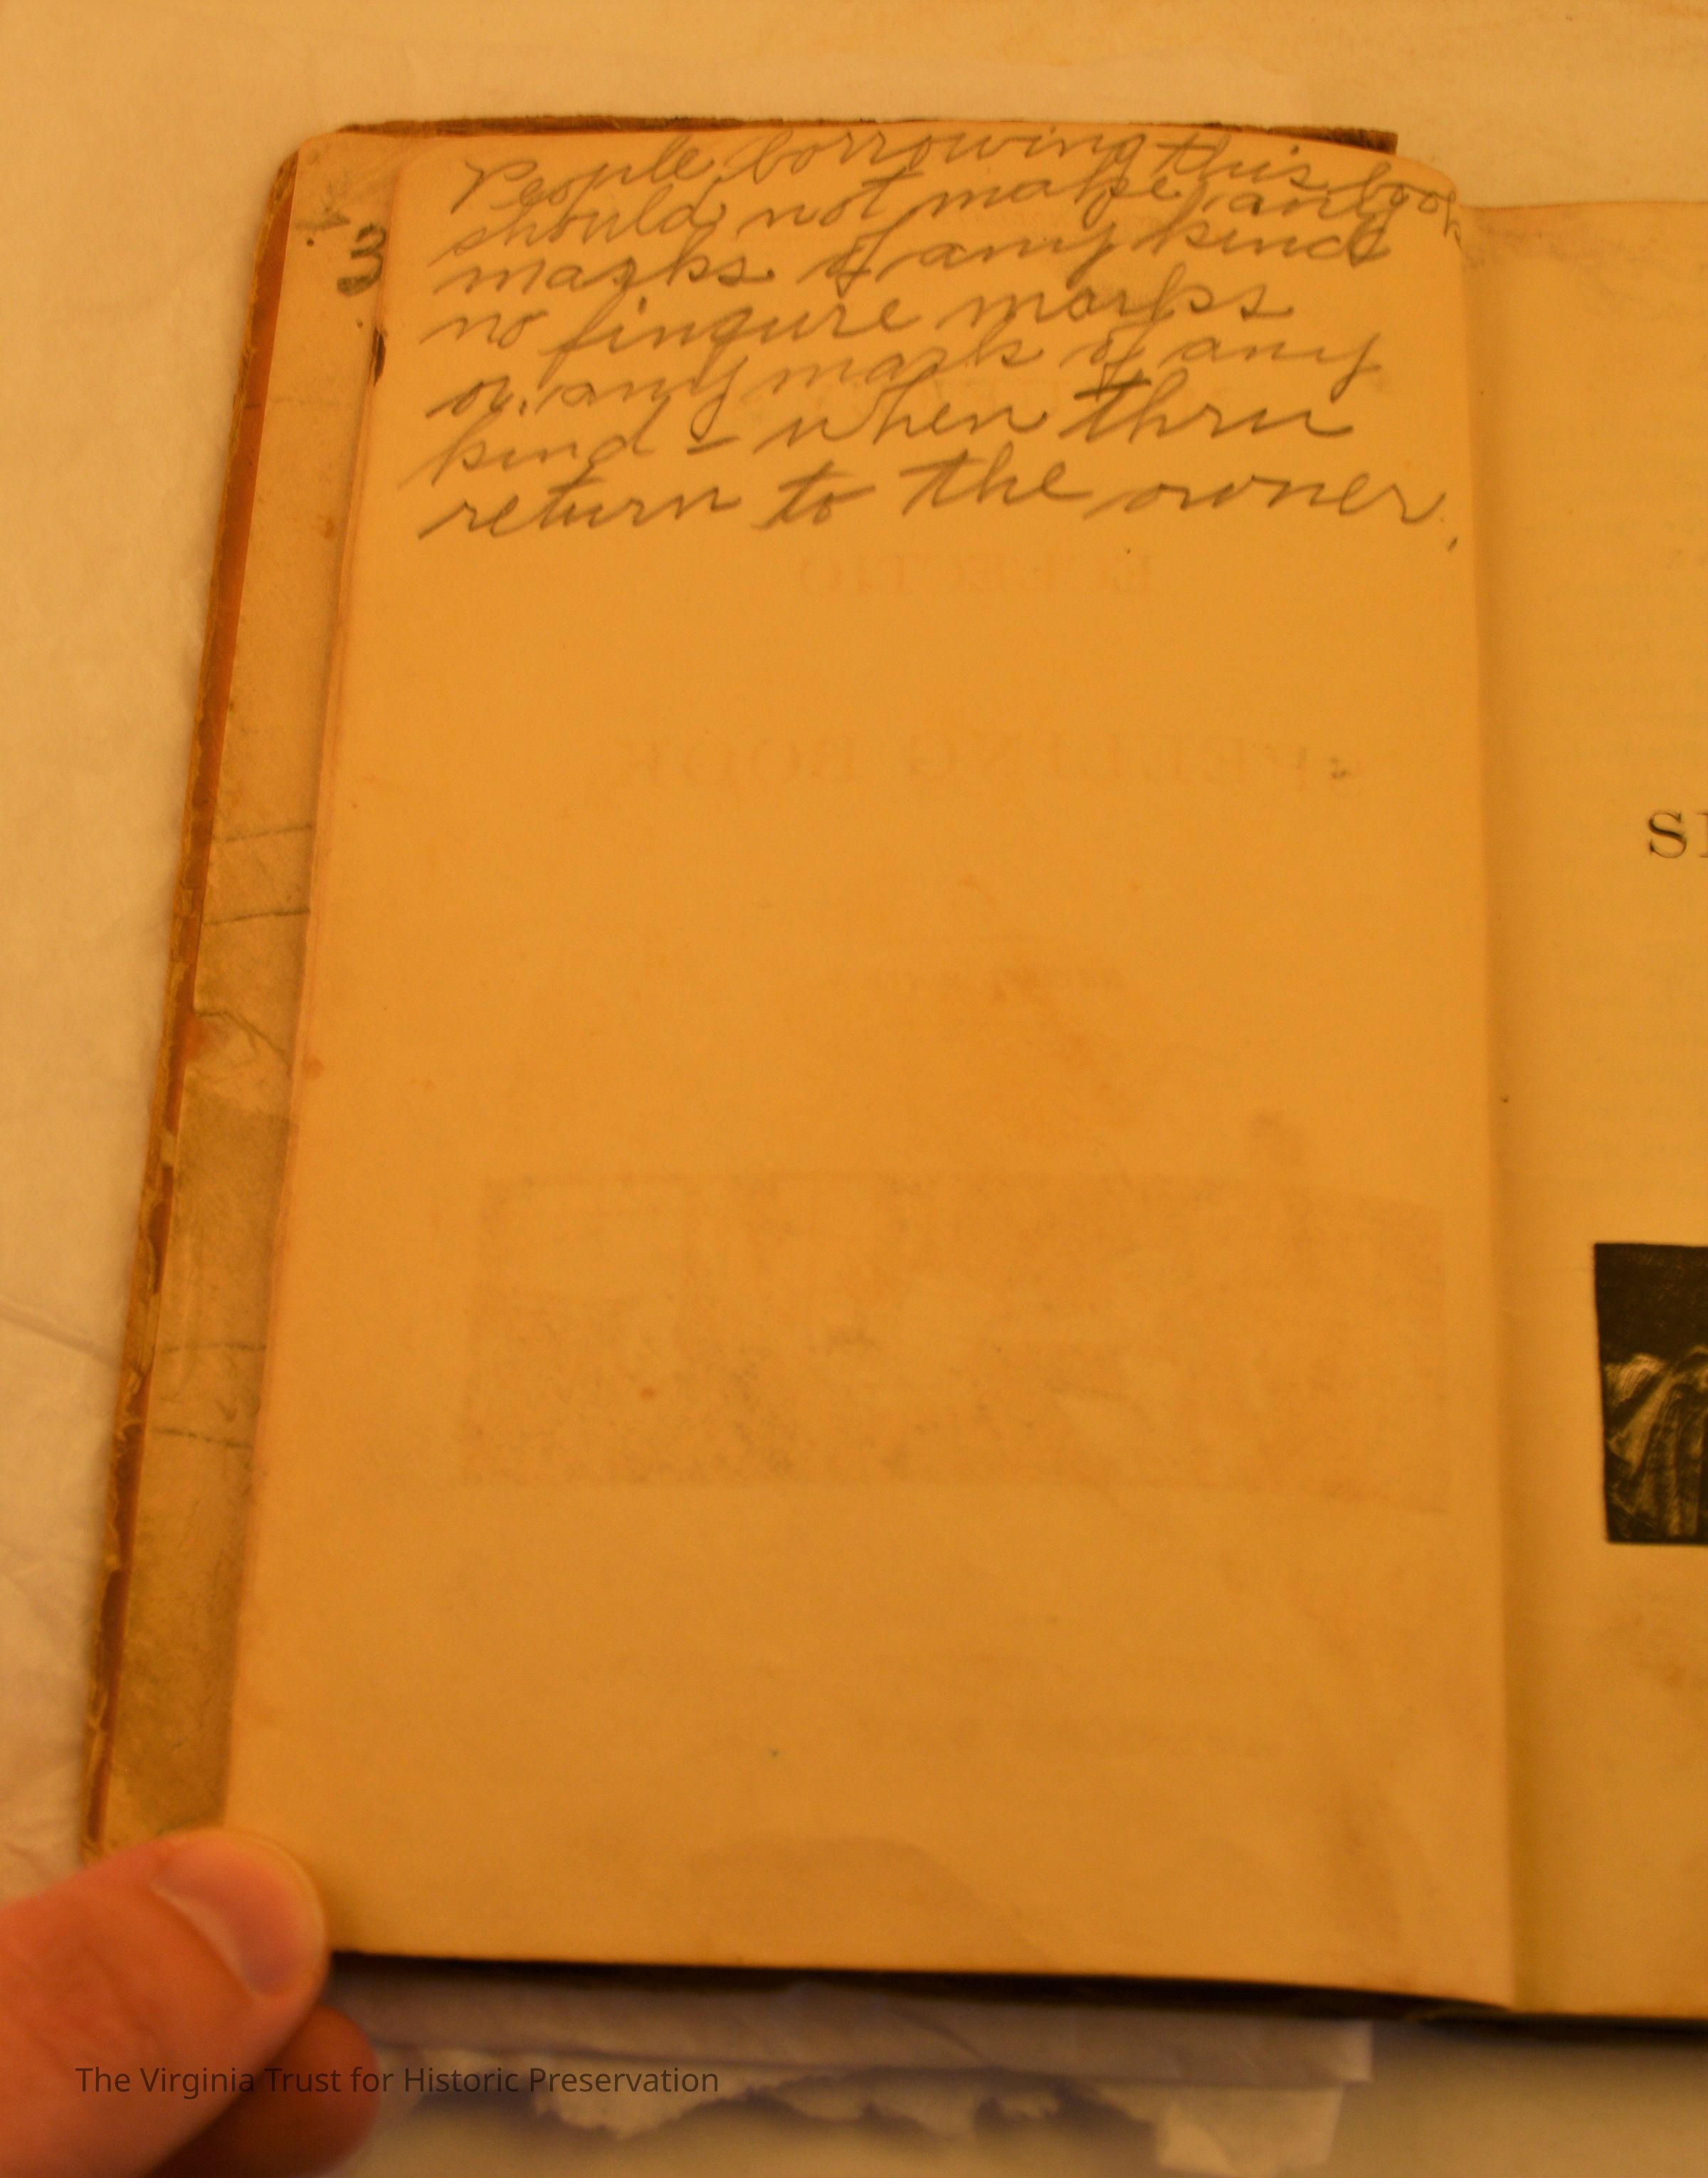 People borrowing this book
should not make any
marks of any kind
no fingure marks
or any mark of any
kind - when thru
return to the owner.
3
ECLECTIC
SPELLING BOOK
The Virginia Trust for Historic Preservation